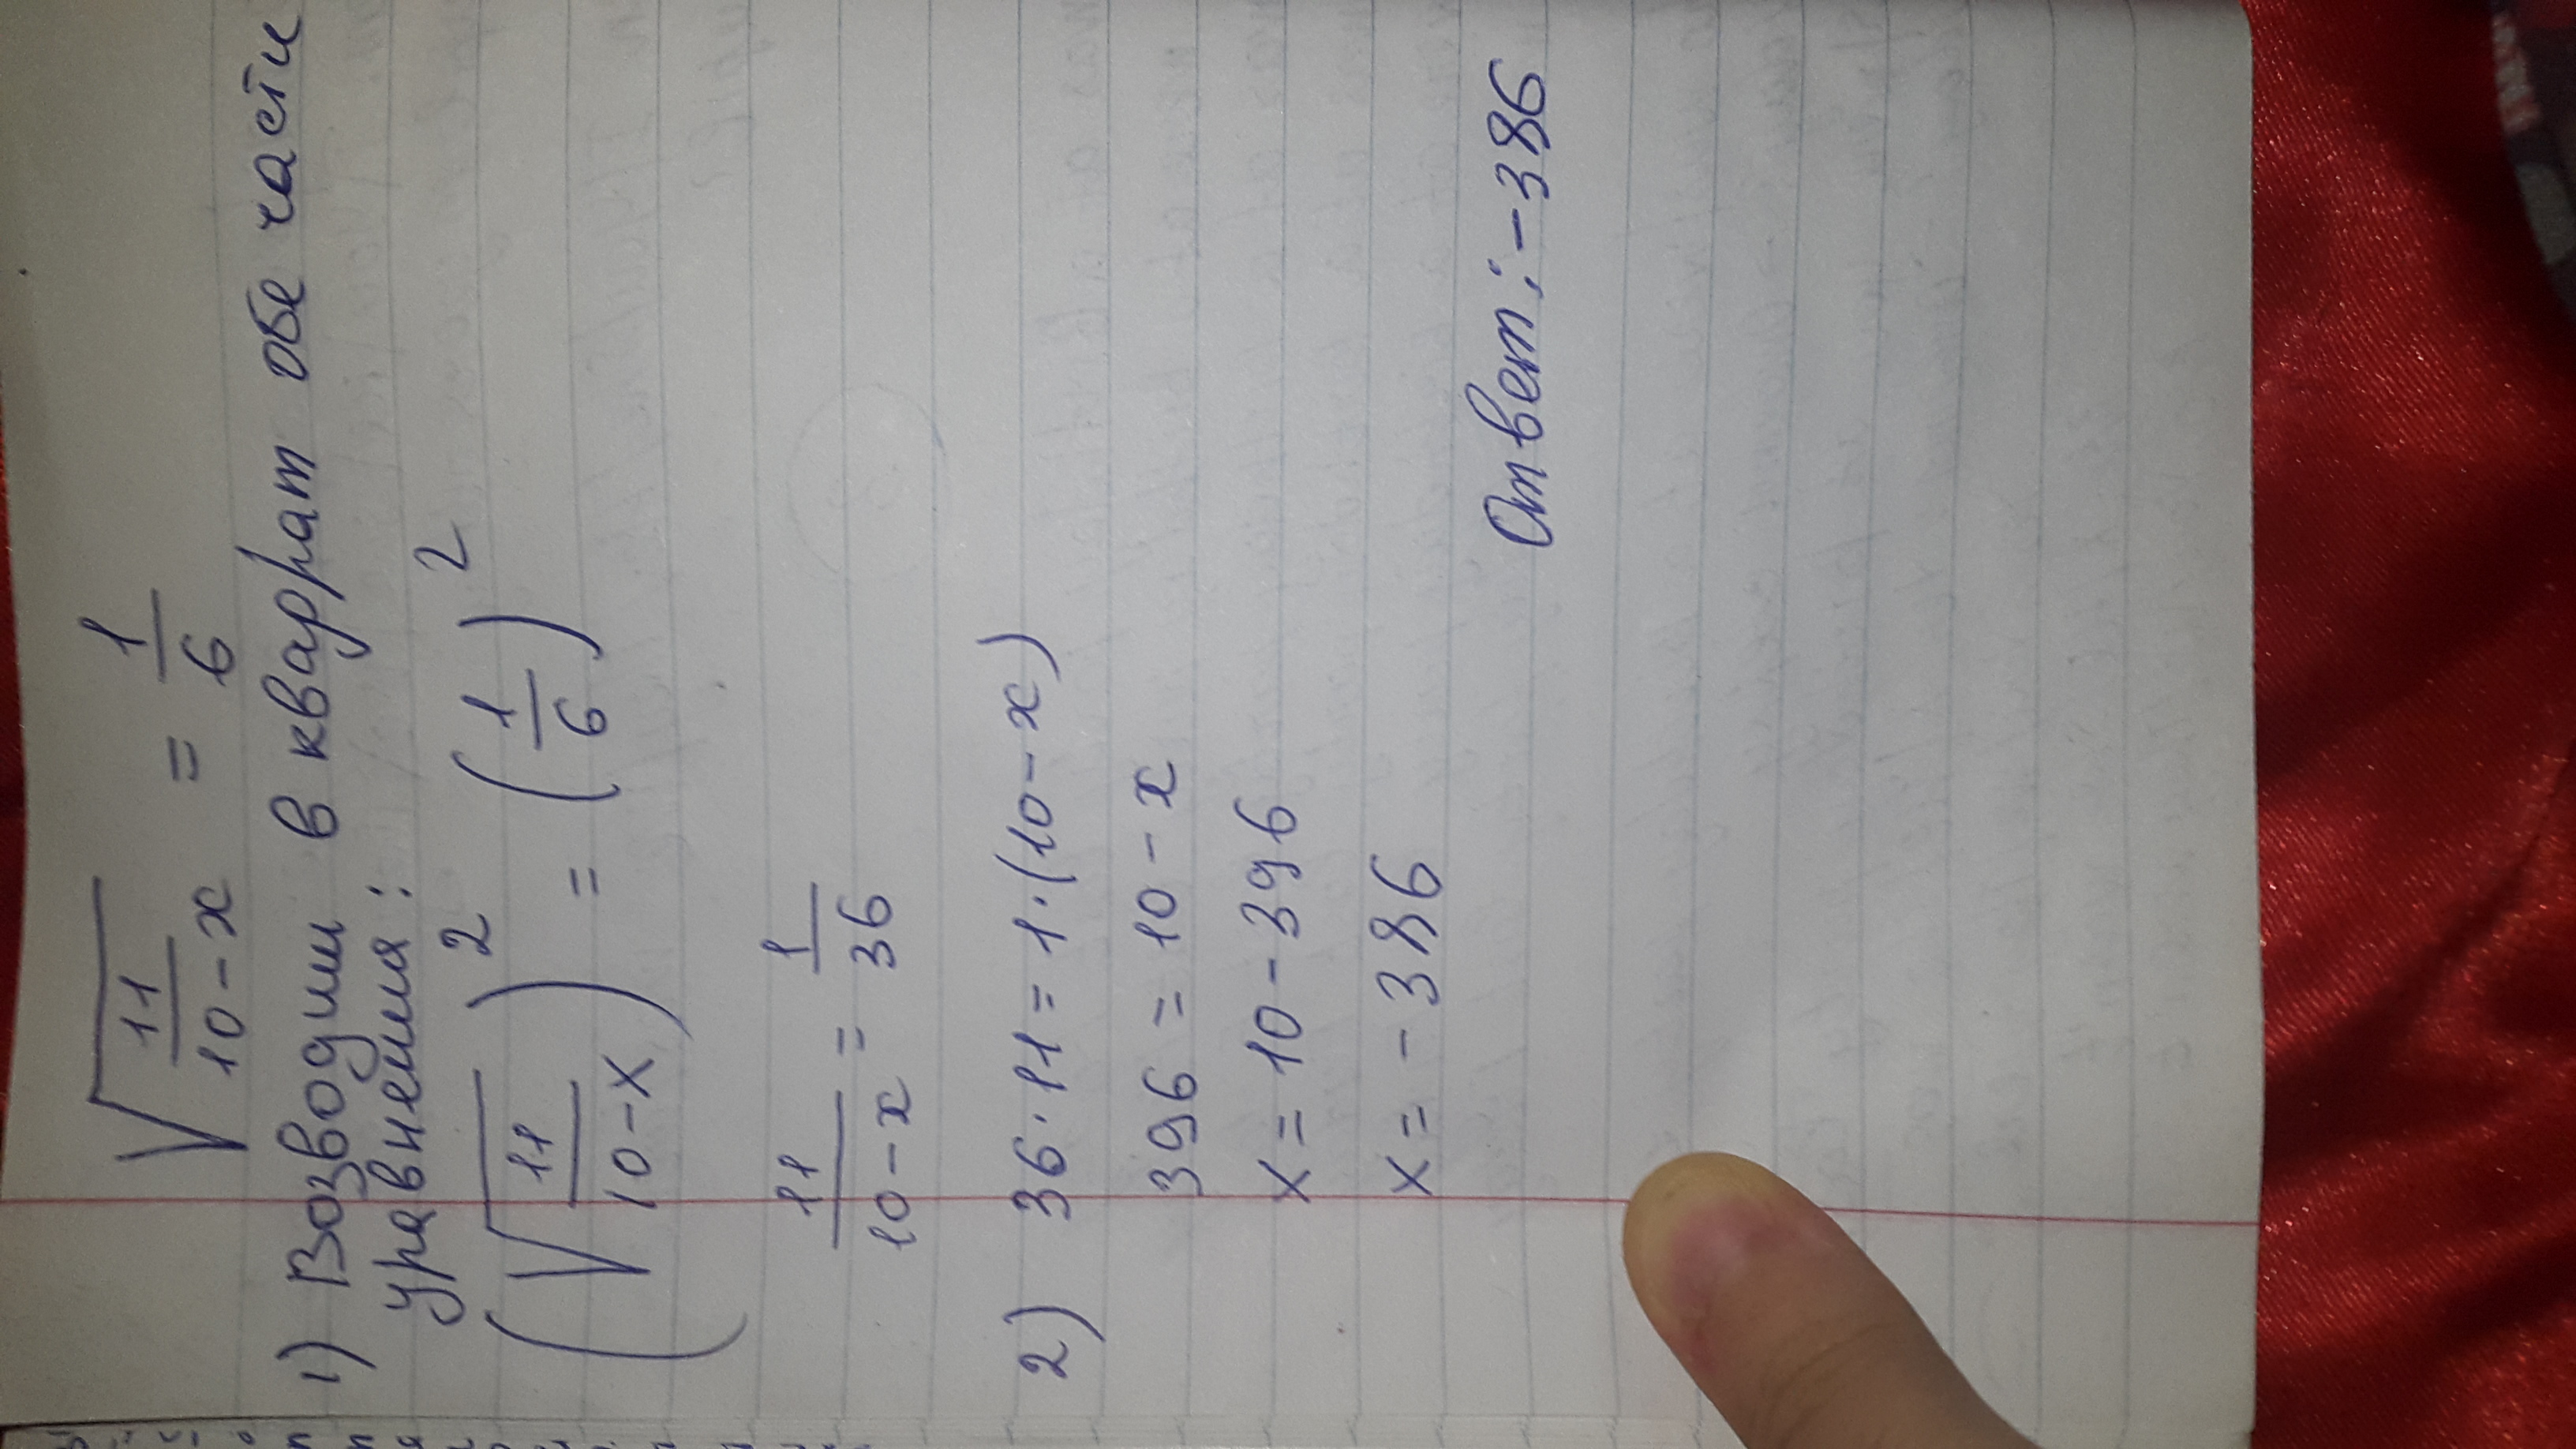 √(11/(10-x)) = 1/6
1) Возводим в квадрат обе части
уравнения:
(√(11/(10-x)))² = (1/6)²
11/(10-x) = 1/36
2) 36·11=1·(10-x)
396=10-x
x=10-396
x=-386
Ответ:-386